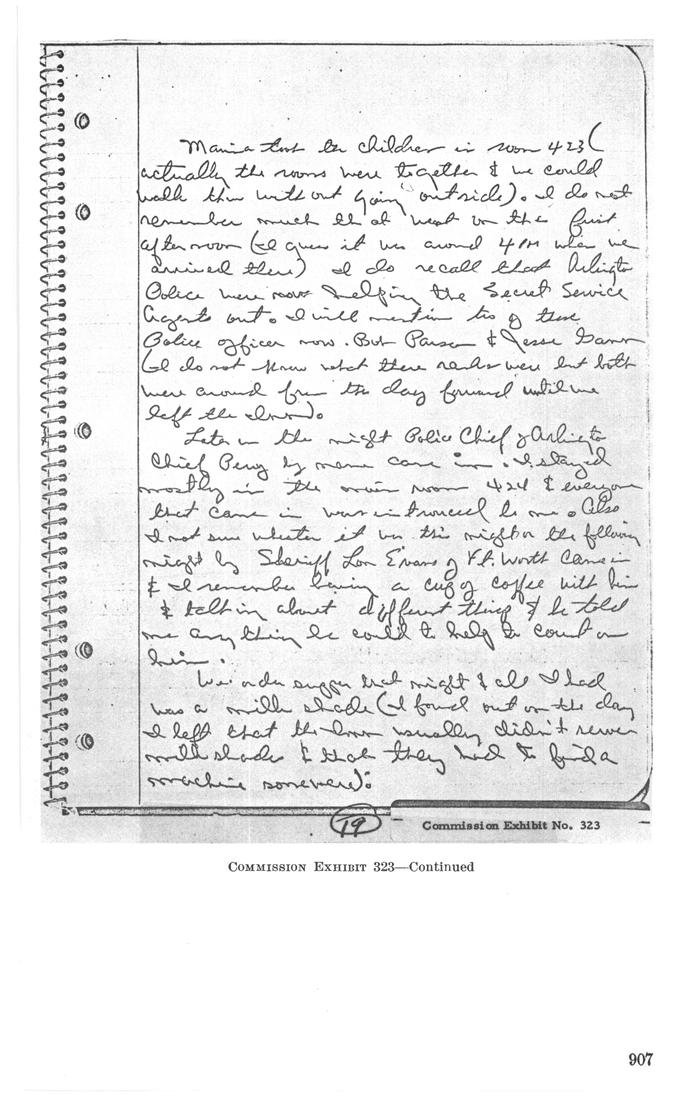 Marina and her children in room 423 (
actually the rooms were together & we could
walk thru without going outside). I do not
remember much that went on the first
afternoon (I guess it was around 4 PM when we
arrived there) I do recall that Arlington
Police were now helping the Secret Service
Agents out. I will mention two of these
Police officer now. Bob Parsons & Jesse
(I do not know what there ranks were but both
were around from the day forward until we
left the Inn).
Later in the night Police Chief of Arlington
Chief Perry by name came in. I stayed
mostly in the main room 424 & everyone
that came in was introduced to me. Also
I not sure whether it was this night or the following
night by Sheriff Lon Evans of Ft. Worth came in
& I remember having a cup of coffee with him
& talking about different things & he told
me anything he could to help to count on
him.
We order supper that night & all I had
was a milk shade (I found out on the day
I left that the Inn usually didn't server
milk shades & that they had to find a
machine somewere).
19
Commission Exhibit No. 323
COMMISSION EXHIBIT 323—Continued
907